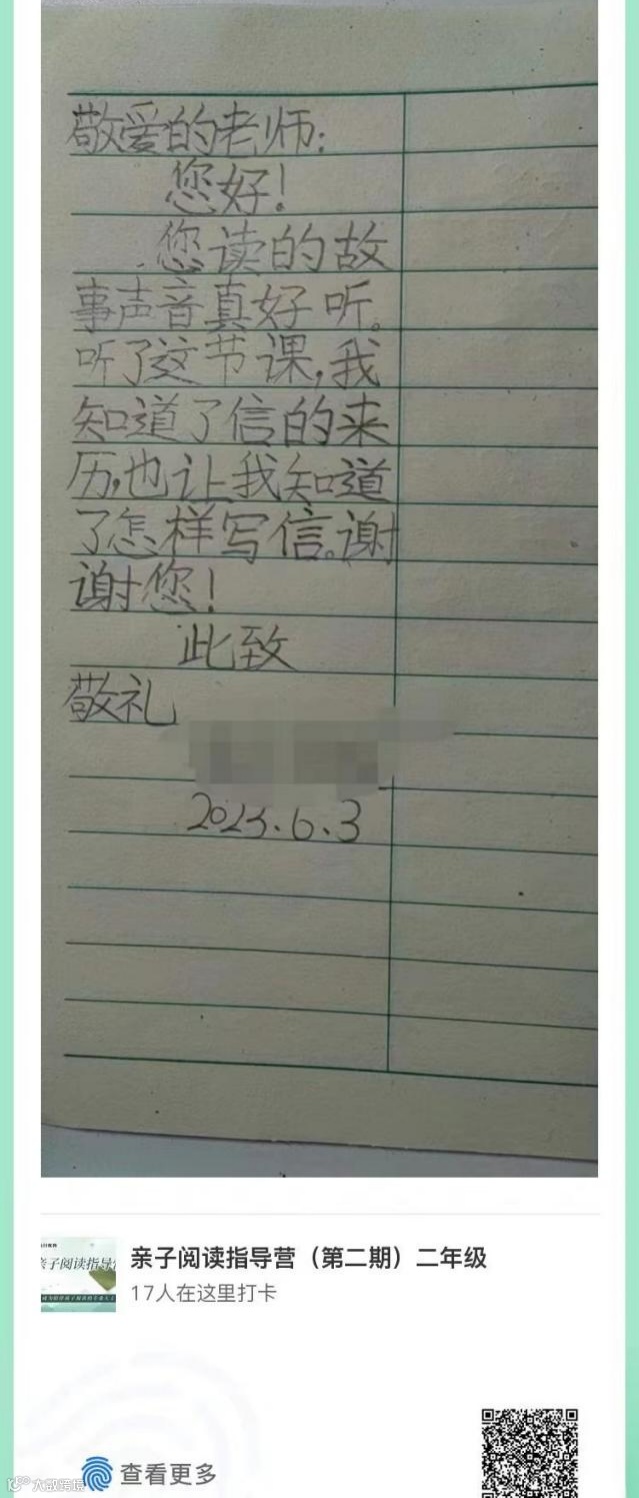 敬爱的老师：
您好！
您读的故
事声音真好听。
听了这节课，我
知道了信的来
历，也让我知道
了怎样写信。谢
谢您！
此致
敬礼
2023.6.3
亲子阅读指导营（第二期）二年级
17人在这里打卡
亲子阅读指导
查看更多
大数跨境